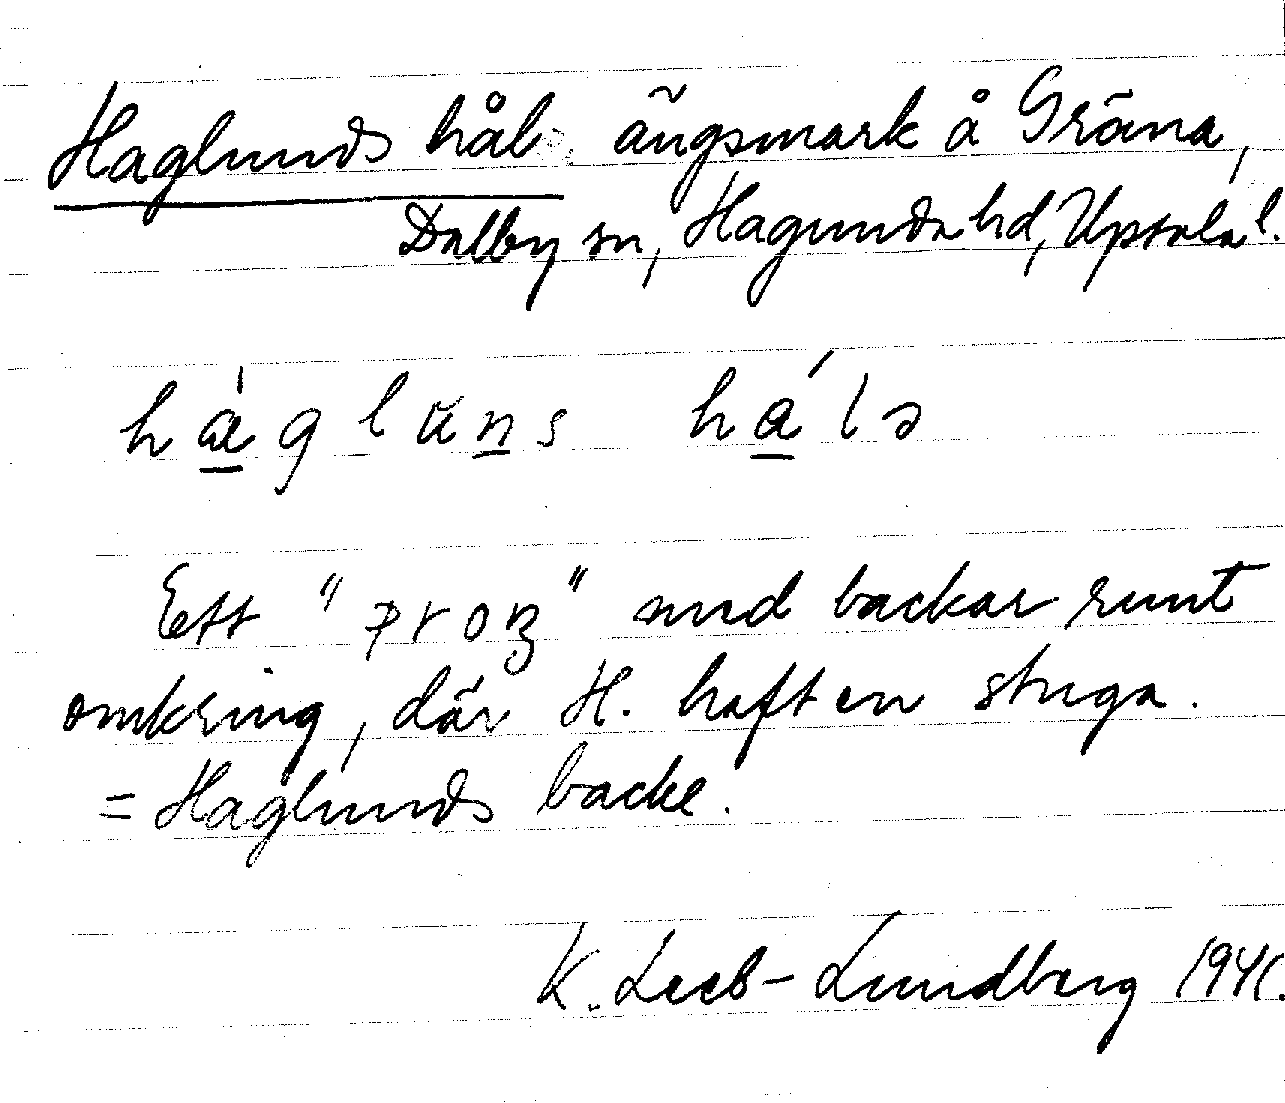 Haglunds hål ängsmark å Gräna,
Dalby sn, Hagunda hd, Upsala l.
hàglᵾns hálə
Ett "proŋ" med backar runt
omkring, där H. haft en stuga.
= Haglunds backe.
K. Leeb-Lundberg 1941.